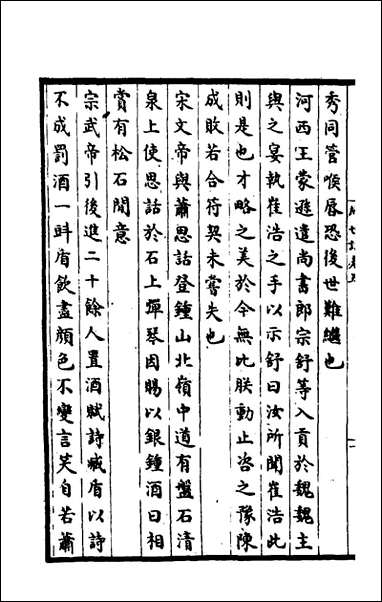 秀同管喉唇恐後世難繼也
河西王蒙遜遣尚書郎宗舒等入貢於魏魏主
與之宴執崔浩之手以示舒曰汝所聞崔浩此
則是也才略之美於今無比朕動止咨之豫陳
成敗若合符契未嘗失也
宋文帝與蕭思話登鍾山北嶺中道有盤石清
泉上使思話於石上彈琴因賜以銀鍾酒曰相
賞有松石間意
宗武帝引後進二十餘人置酒賦詩臧盾以詩
不成罰酒一㪷盾飲盡顏色不變言笑自若蕭